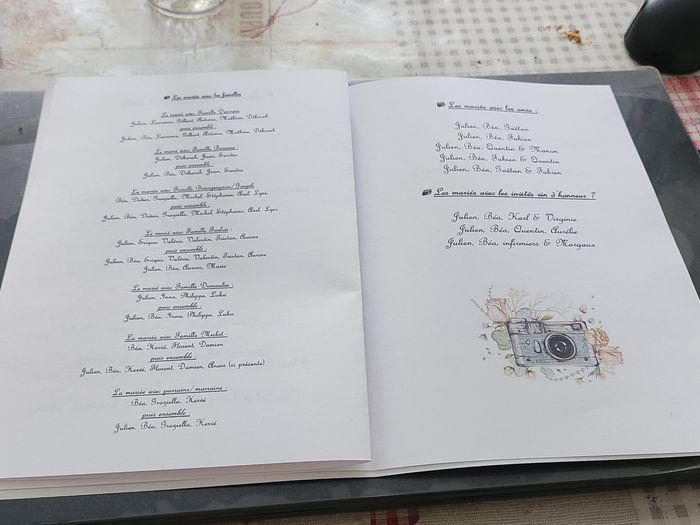 Les mariés avec les familles
Le marié avec Famille
Julien, Laurence, Gilbert, Antoine, Mathieu, Déborah
puis ensemble :
Julien, Béa, Laurence, Gilbert, Antoine, Mathieu, Déborah
Le marié avec Famille
Julien, Déborah, Juan, Sandra
puis ensemble :
Julien, Béa, Déborah, Juan, Sandra
La mariée avec Famille Bourguignon/
Béa, Didier, Graziella, Michel, Stéphanie, Axel,
puis ensemble :
Julien, Béa, Didier, Graziella, Michel, Stéphanie, Axel,
Le marié avec Famille
Julien, Enrique, Valérie, Valentin, Tristan, Aurore
puis ensemble :
Julien, Béa, Enrique, Valérie, Valentin, Tristan, Aurore
Julien, Béa, Aurore, Marie
Le marié avec Famille Dumoulin :
Julien, Inna, Philippe, Luka
puis ensemble :
Julien, Béa, Inna, Philippe, Luka
La mariée avec Famille Michot :
Béa, Hervé, Florent, Damien
puis ensemble :
Julien, Béa, Hervé, Florent, Damien, Anaïs (si présente)
La mariée avec parrains/marraine :
Béa, Graziella, Hervé
puis ensemble :
Julien, Béa, Graziella, Hervé
Les mariés avec les amis :
Julien, Béa, Gaëtan
Julien, Béa, Fabien
Julien, Béa, Quentin & Manon
Julien, Béa, Fabien & Quentin
Julien, Béa, Gaëtan & Fabien
Les mariés avec les invités vin d'honneur ?
Julien, Béa, Karl & Virginie
Julien, Béa, Quentin, Aurélie
Julien, Béa, infirmiers & Margaux